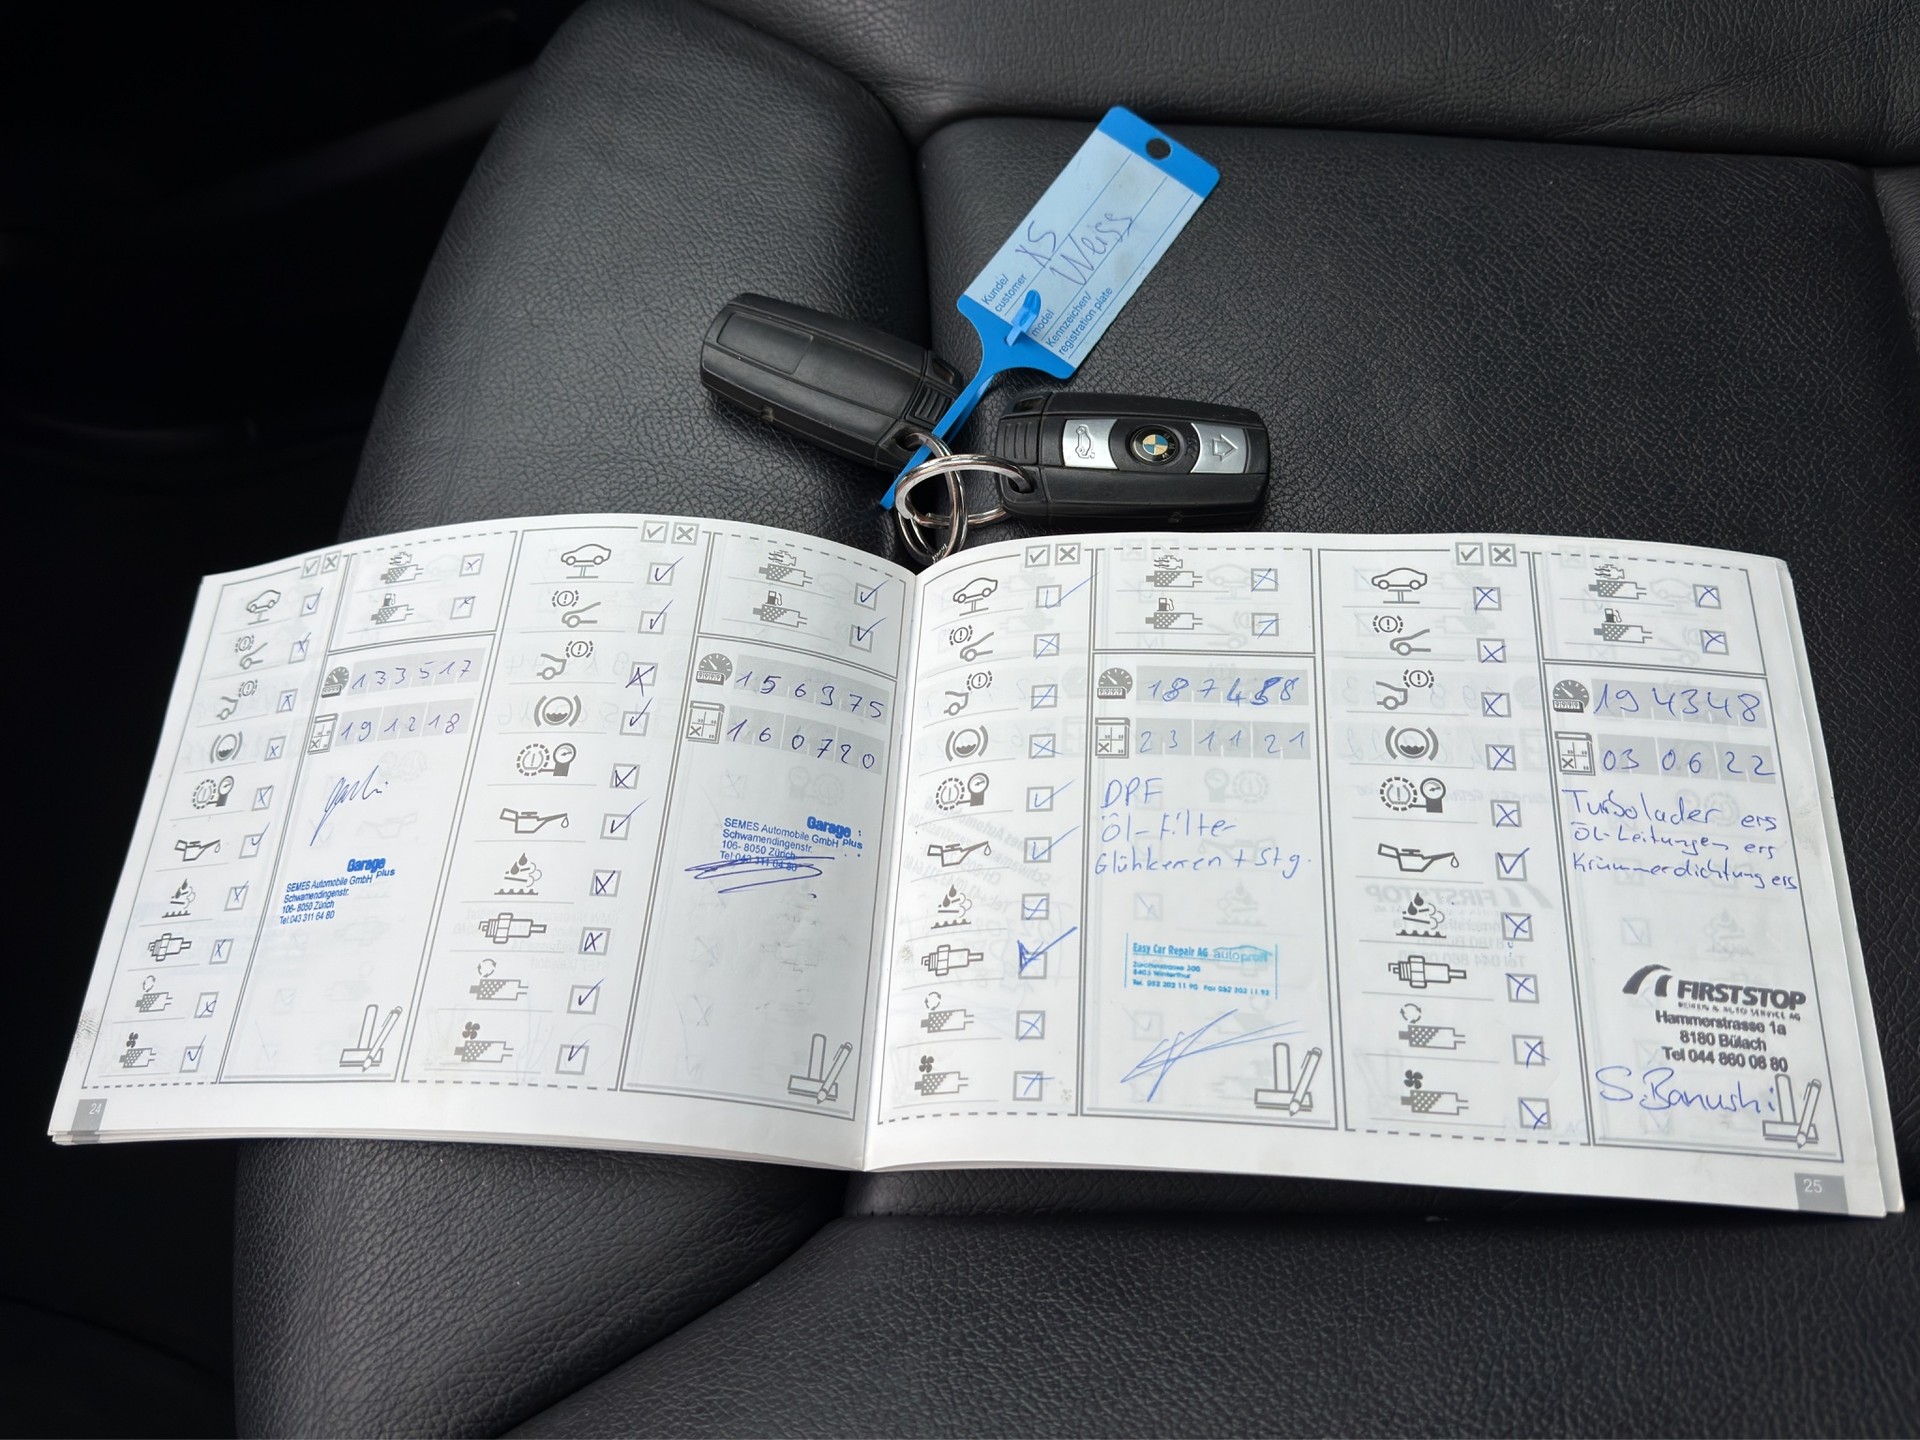 X5
Weiss
Kunde/
customer
model
Kennzeichen/
registration plate
133517
191218
Garage plus
SEMES Automobile GmbH
Schwamendingenstr.
106- 8050 Zürich
Tel:043 311 64 80
24
156975
160720
Garage plus
SEMES Automobile GmbH
Schwamendingenstr.
106- 8050 Zürich
Tel:043 311 64 80
187488
231121
DPF
Öl-Filter
Glühkerzen + Stg.
Easy Car Repair AG autoprofi
Zürcherstrasse 300
8406 Winterthur
Tel. 052 202 11 90 Fax 052 202 11 93
194348
030622
Turbolader ers
Öl-Leitungen ers
Krümmerdichtung ers
FIRSTSTOP
REIFEN & AUTO SERVICE AG
Hammerstrasse 1a
8180 Bülach
Tel 044 860 06 80
S.Banushi
25